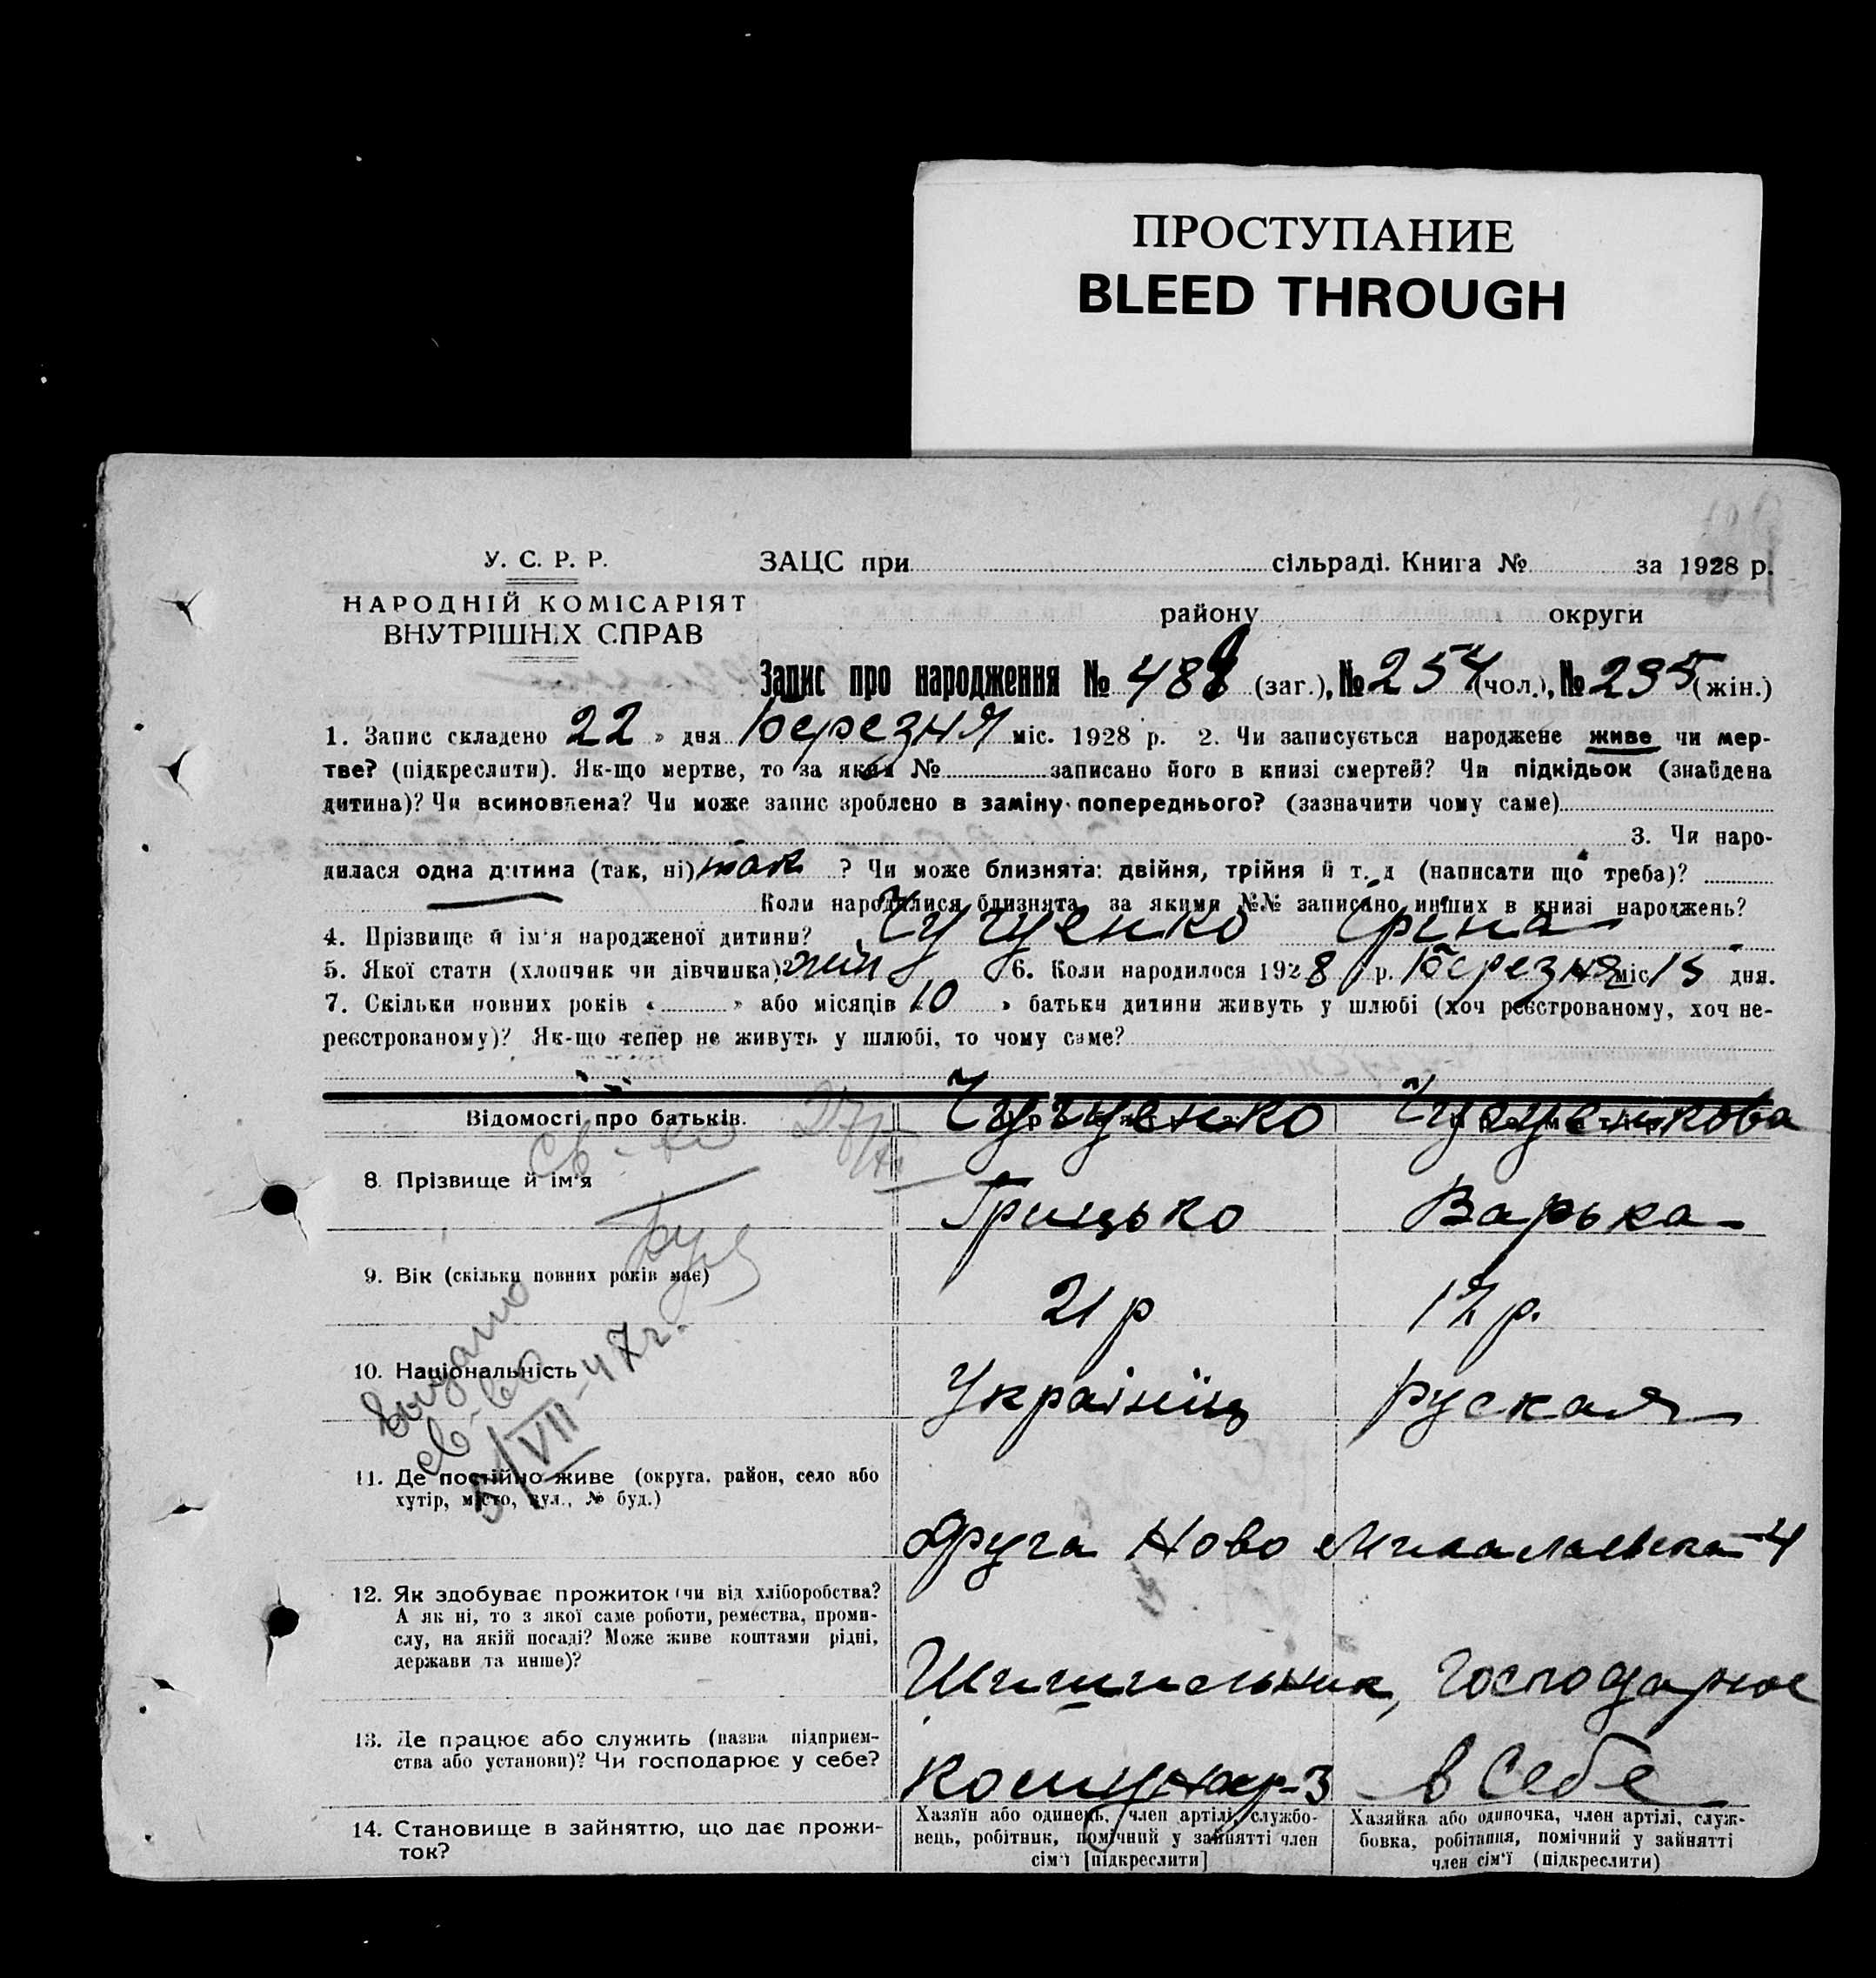 ПРОСТУПАНИЕ
BLEED THROUGH
У. С. Р. Р.
НАРОДНІЙ КОМІСАРІЯТ
ВНУТРІШНІХ СПРАВ
ЗАЦС при сільраді. Книга № за 1928 р.
району округи
Запис про народження № 488 (заг.), № 254 (чол.), № 235 (жін.)
1. Запис складено 22 » дня березня міс. 1928 р. 2. Чи записується народжене живе чи мер-
тве? (підкреслити). Як-що мертве, то за яким № записано його в книзі смертей? Чи підкідьок (знайдена
дитина)? Чи всиновлена? Чи може запис зроблено в заміну попереднього? (зазначити чому саме)
3. Чи наро-
дилася одна дитина (так, ні) так ? Чи може близнята: двійня, трійня й т. д (написати що треба)?
Коли народилися близнята, за якими №№ записано инших в книзі народжень?
4. Прізвище й ім'я народженої дитини? Чугуенко Ірина
5. Якої стати (хлопчик чи дівчинка)? жін 6. Коли народилося 1928 р. березня міс 15 дня.
7. Скільки повних років « » або місяців 10 » батьки дитини живуть у шлюбі (хоч реєстрованому, хоч не-
реєстрованому)? Як-що тепер не живуть у шлюбі, то чому саме?
Відомості про батьків.
Чугуенко
8. Прізвище й ім'я
Грицько Варька
9. Вік (скільки повних років має)
21 р 17 р.
10. Національність
Українїць руская
11. Де постійно живе (округа, район, село або
хутір, місто, вул., № буд.)
Друга Ново 4
12. Як здобуває прожиток (чи від хліборобства?
А як ні, то з якої саме роботи, ремества, проми-
слу, на якій посаді? Може живе коштами рідні,
держави та инше)?
Господарює
13. Де працює або служить (назва підприєм-
ства або установи)? Чи господарює у себе?
в себе
14. Становище в зайняттю, що дає прожи-
ток?
Хазяїн або одинець, член артілі, службо-
вець, робітник, помічний у зайнятті член
сім'ї [підкреслити]
Хазяйка або одиночка, член артілі, служ-
бовка, робітниця, помічний у зайнятті
член сім'ї (підкреслити)
Выдано
св-во
5/VII-47г.